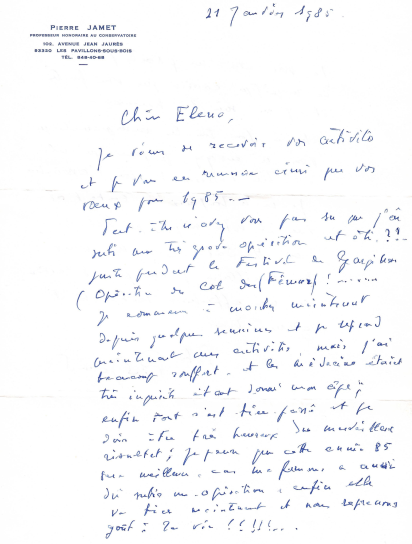 PIERRE JAMET
PROFESSEUR HONORAIRE AU CONSERVATOIRE
102, AVENUE JEAN JAURÈS
93320 LES PAVILLONS-SOUS-BOIS
TÉL. 848-40-86
21 Janvier 1985.
Chère Elena,
Je viens de recevoir vos activités
et je vous en remercie ainsi que vos
vœux pour 1985. —
Peut-être n'avez vous pas su que j'ai
subi une très grave opération cet été !??
juste pendant le Festival de Gargilesse
(Opération du Col du (Fémur) !......
Je commence à marcher maintenant
depuis quelques semaines et je reprend
maintenant mes activités, mais j'ai
beaucoup souffert, et les médecins étaient
très inquiets étant donné mon âge ;
enfin tout s'est bien passé et je
dois être très heureux du merveilleux
résultat ; je pense que cette année 85
sera meilleure, car ma femme a aussi
dû subir une opération, enfin elle
va bien maintenant et nous reprenons
goût à la vie !!!!!...